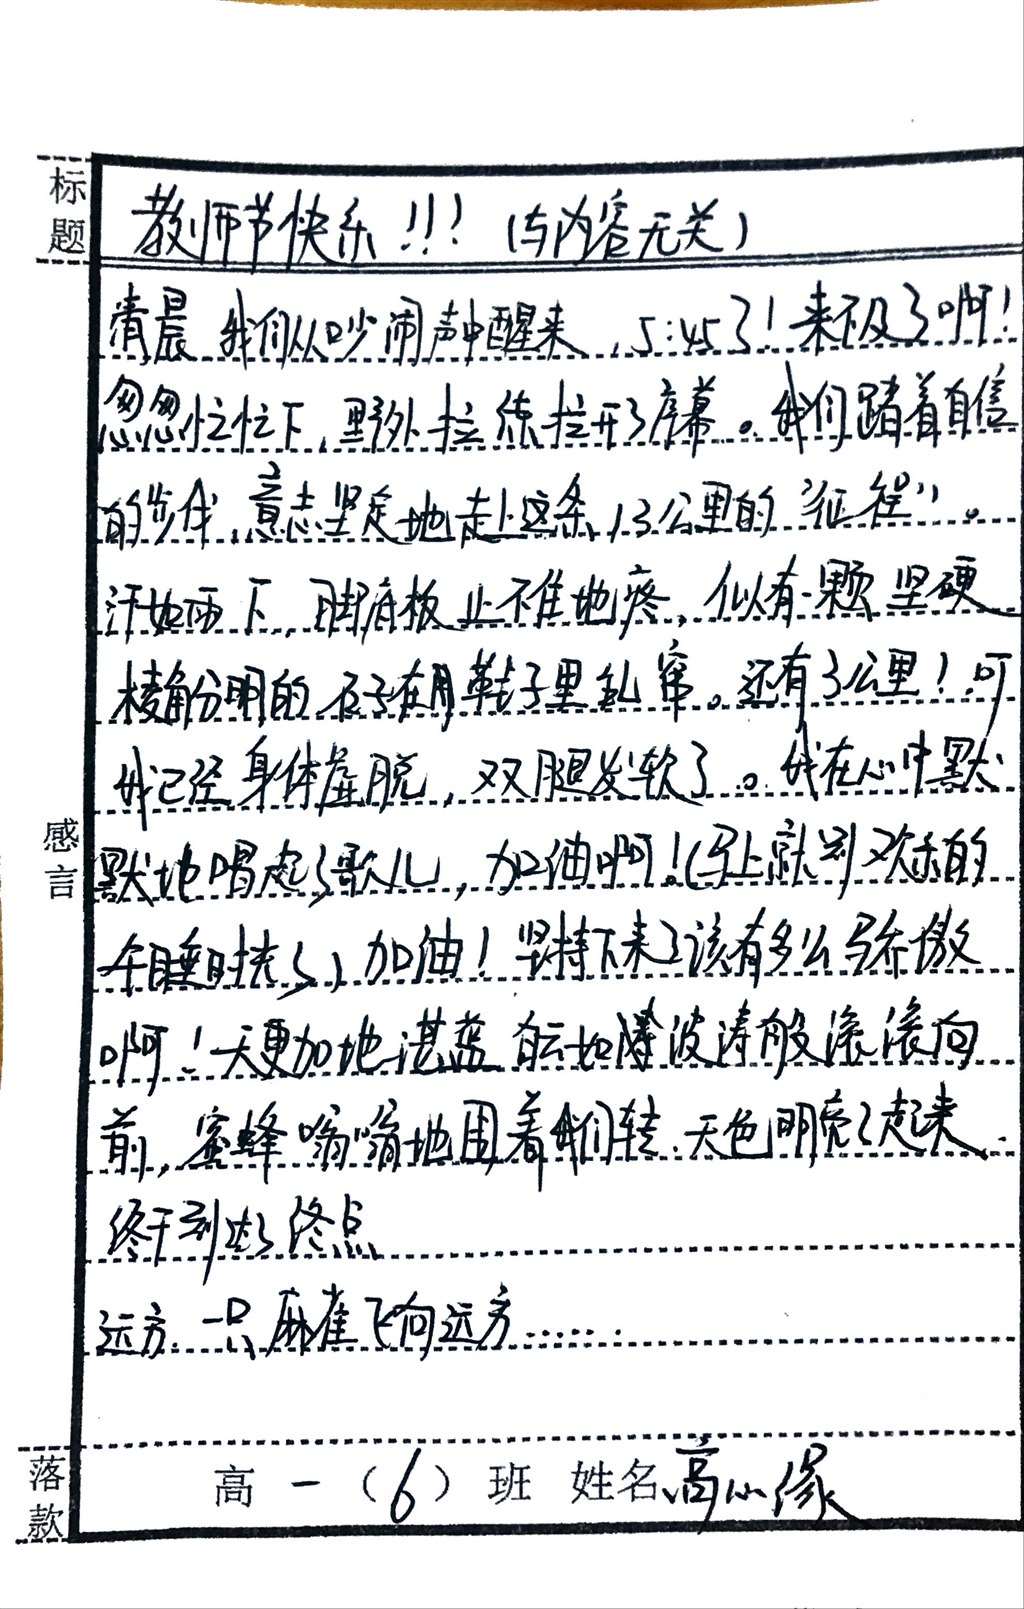 标题
教师节快乐!!!(与内容无关)
清晨 我们从吵闹声中醒来,5:45了!来不及了啊!
匆匆忙忙下,野外拉练拉开了序幕。我们踏着自信
的步伐,意志坚定地走上这条13公里的“征程”。
汗如雨下,脚底板止不住地疼,似有一颗坚硬
棱角分明的石子在鞋子里乱窜。还有3公里!可
我已经身体虚脱,双腿发软了。我在心中默
默地唱起了歌儿,加油啊!(马上就到又欢乐的
午睡时光了)加油!坚持下来了该有多么骄傲
啊!天更加地湛蓝 白云如波涛般滚滚向
前,蜜蜂嗡嗡地围着我们转,天色明亮了起来.
终于到达了终点
远方,一只麻雀飞向远方......
感言
落款
高一(6)班 姓名 高心缘